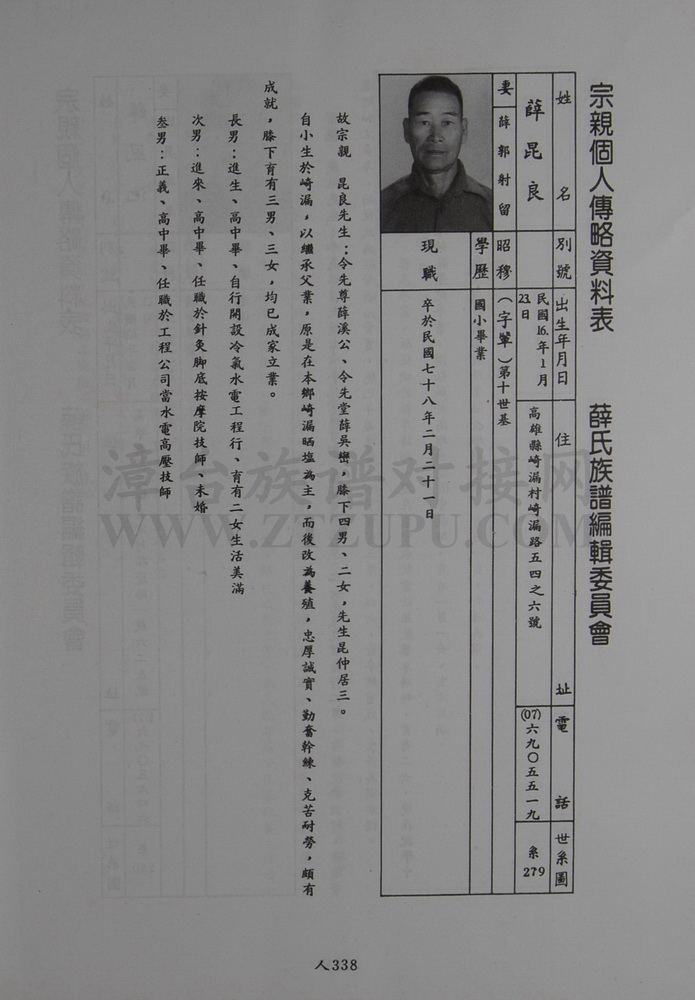 宗親個人傳略資料表　薛氏族譜編輯委員會
姓名　別號　出生年月日　住址　電話　世系圖
薛昆良　民國16.年1月23.日　高雄縣崎漏村崎漏路五四之六號　(07)六九〇五五一九　系279
妻　薛郭射留　昭穆　（字輩）第十世基
學歷　國小畢業
現職　卒於民國七十八年二月二十一日
故宗親　昆良先生：令先尊薛溪公、令先堂薛吳巒，膝下四男、二女，先生昆仲居三。
自小生於崎漏，以繼承父業，原是在本鄉崎漏晒塩為主，而後改為養殖，忠厚誠實、勤奮幹練、克苦耐勞，頗有
成就，膝下育有三男、三女，均已成家立業。
長男：進生、高中畢、自行開設冷氣水電工程行、育有二女生活美滿
次男：進來、高中畢、任職於針灸脚底按摩院技師、未婚
叁男：正義、高中畢、任職於工程公司當水電高壓技師
漳台族谱对接网
WWW.ZTZUPU.COM
人338